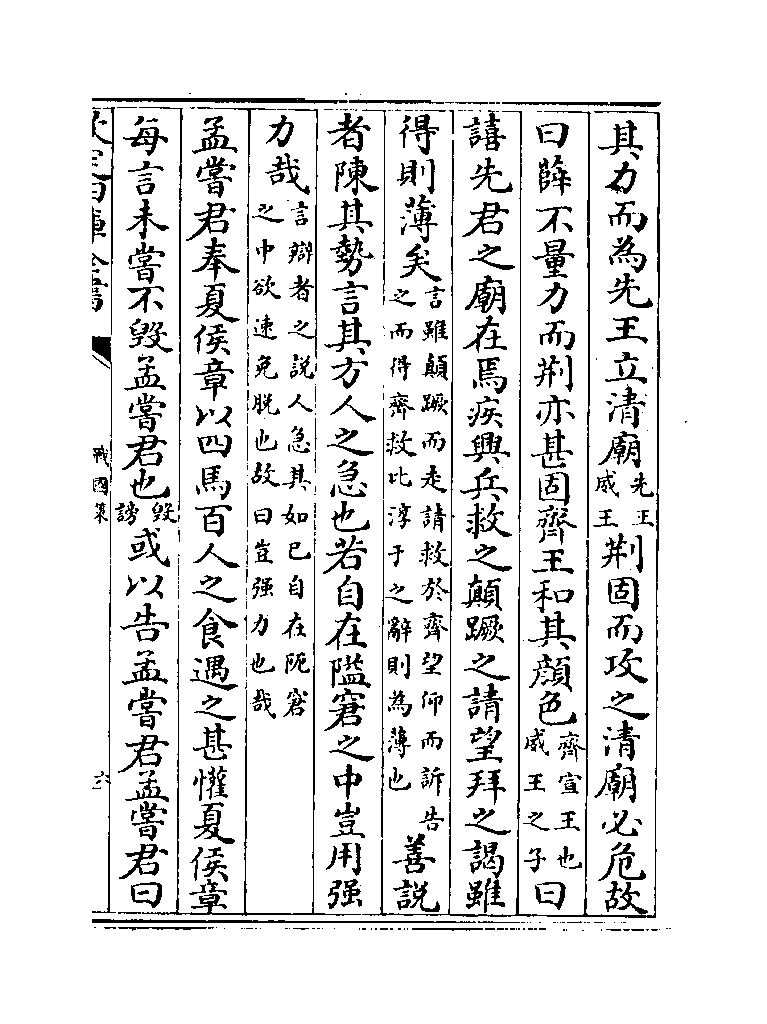 其力而為先王立清廟先王威王荆固而攻之清廟必危故
曰薛不量力而荆亦甚固齊王和其顔色齊宣王也威王之子曰
譆先君之廟在焉疾興兵救之顛蹶之請望拜之謁雖
得則薄矣言雖顛蹶而走請救於齊望仰而訴告之而得齊救比淳于之辭則為薄也善説
者陳其勢言其方人之急也若自在隘窘之中豈用强
力哉言辯者之説人急其如已自在阨窘之中欲速免脱也故曰豈强力也哉
孟嘗君奉夏侯章以四馬百人之食遇之甚懽夏侯章
每言未嘗不毁孟嘗君也毁謗或以告孟嘗君孟嘗君曰
戰國策
六